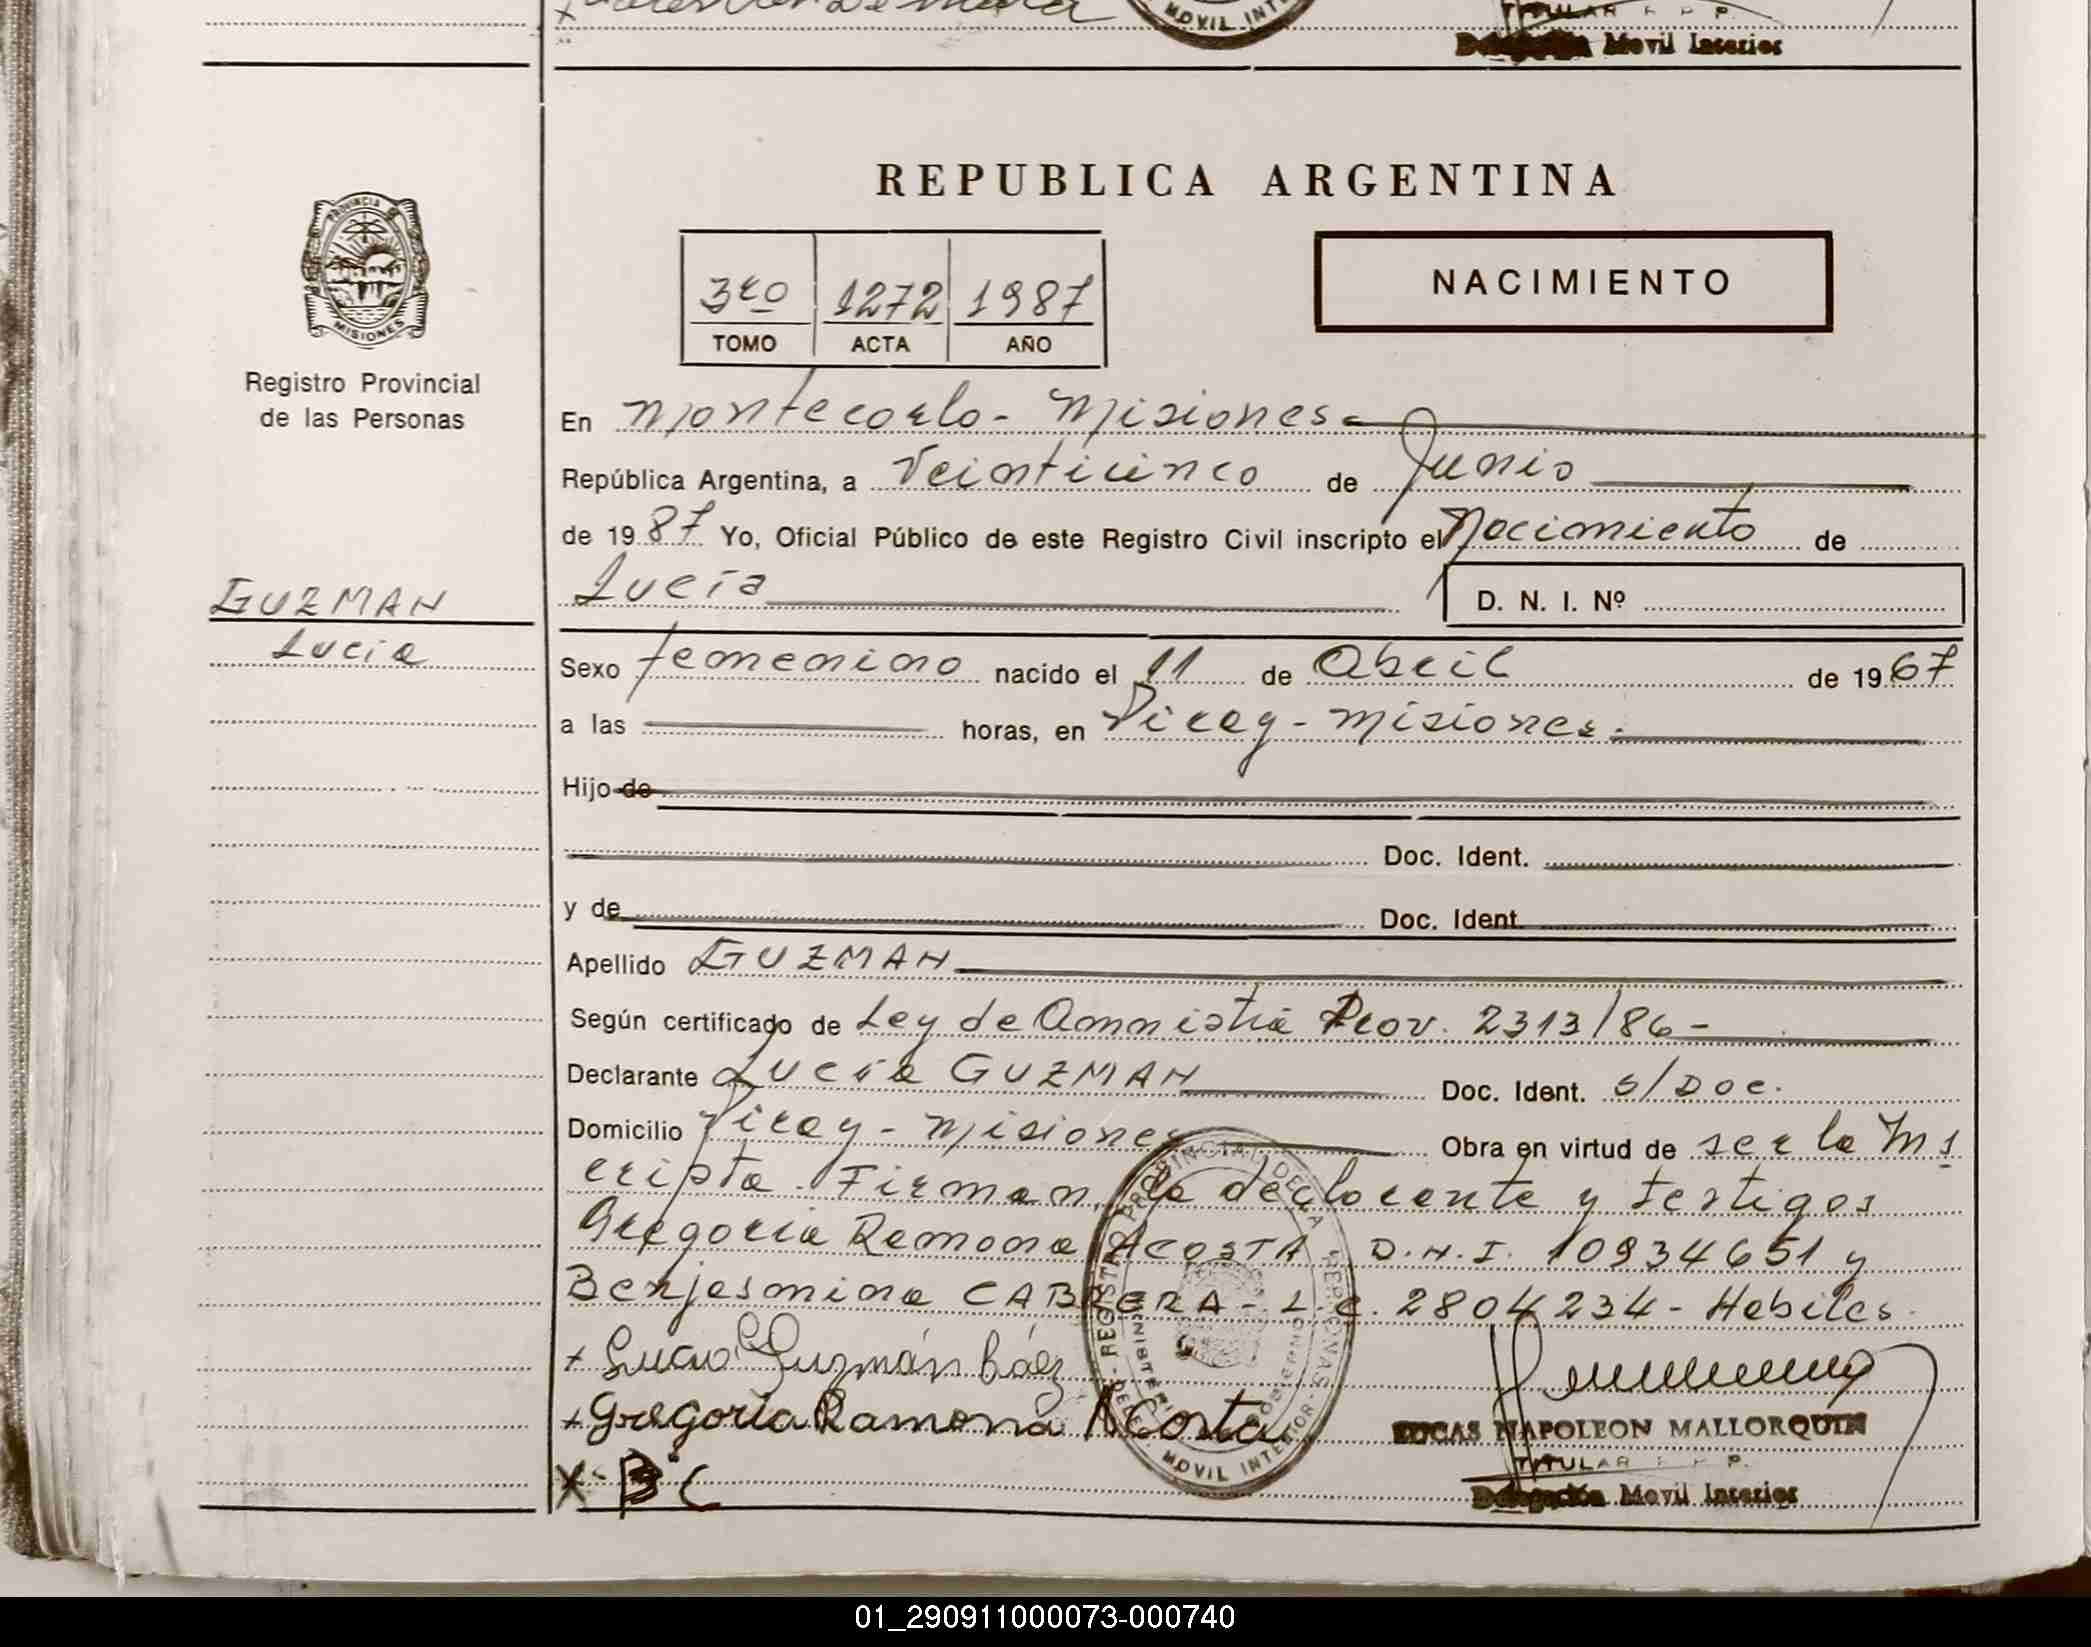 MOVIL INTE
TITULAR R. P. P.
Delegación Movil Interior
REPUBLICA ARGENTINA
PROVINCIA DE
MISIONES
Registro Provincial
de las Personas
NACIMIENTO
3ro 1272 1987
TOMO ACTA AÑO
En Montecarlo - Misiones -
República Argentina, a Veinticinco de Junio
de 1987 Yo, Oficial Público de este Registro Civil inscripto el Nacimiento de
Lucía
D. N. I. Nº
GUZMAN
Lucía
Sexo femenino nacido el 11 de Abril de 1967
a las horas, en Piray - Misiones.
Hijo de
Doc. Ident.
y de Doc. Ident.
Apellido GUZMAN
Según certificado de Ley de Amnistia Prov. 2313/86 -
Declarante Lucía GUZMAN Doc. Ident. s/Doc.
Domicilio Piray - Misiones Obra en virtud de ser la Ins
cripta. Firman, la declarante y testigos
Gregoria Ramona ACOSTA D.N.I. 10934651 y
Benjasmina CABRERA - L.C. 2804234 - Habiles.
+ Lucia Guzmán Báez
+ Gregoria Ramona Acosta
X B C
REGISTRO PROVINCIAL DE LAS PERSONAS
MINISTERIO GOBIERNO
DELEG. MOVIL INTERIOR
LUCAS NAPOLEON MALLORQUIN
TITULAR R. P. P.
Delegación Movil Interior
01_290911000073-000740